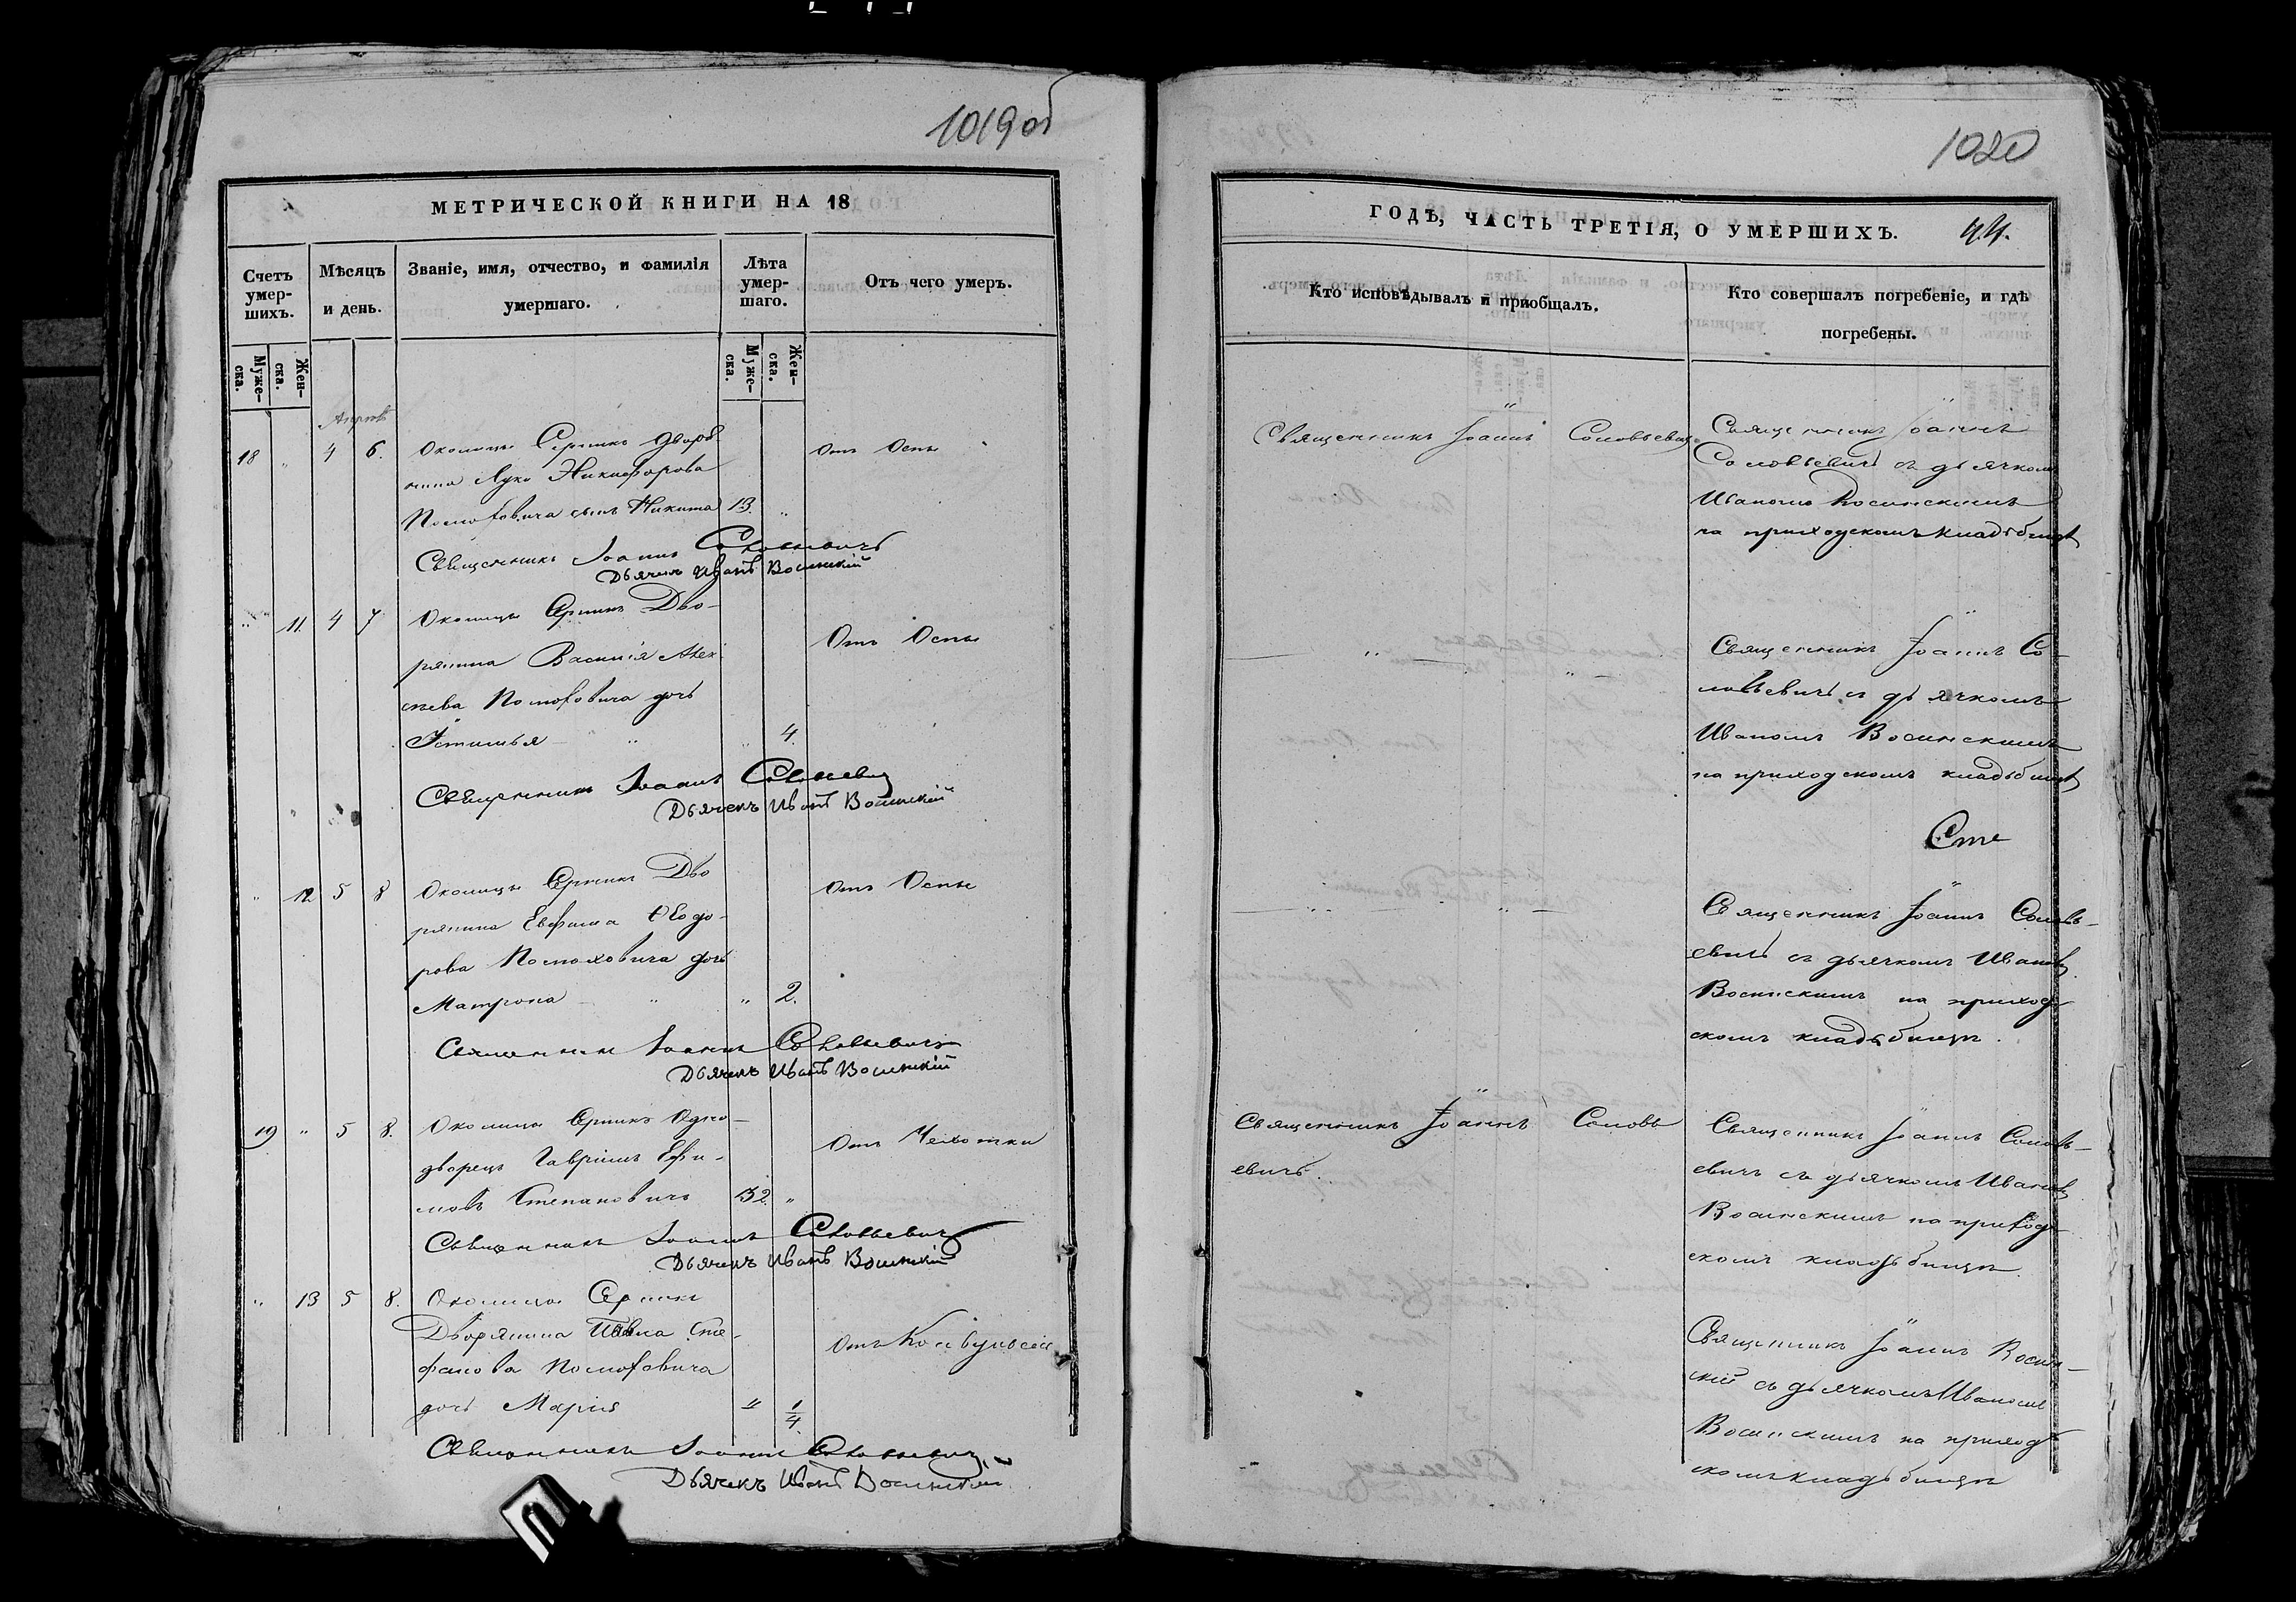 1019 об
МЕТРИЧЕСКОЙ КНИГИ НА 18
Счетъ умер-шихъ.
Мѣсяцъ и день.
Званіе, имя, отчество, и фамилія умершаго.
Лѣта умер-шаго.
Отъ чего умеръ.
Муже-ска.
Жен-ска.
Муже-ска.
Жен-ска.
18 „ 4 6. Околицы Двор
нина Луки Никифорова
сынъ Никита 13. „
Отъ Оспы
Священникъ Іоаннъ Соловьевичъ
Дьячекъ Иванъ Восинскій
„ 11. 4 7 Околицы Дво-
рянина Василія Алек-
сѣева дочь
4.
Отъ Оспы
Священникъ Іоаннъ
Дьячекъ Иванъ Восинскій
„ 12 5 8 Околицы Дво
рянина Евфима Ѳеодо-
рова дочь
Матрона „ „ 2.
Отъ Оспы
Священникъ Іоаннъ Соловьевичъ
Дьячекъ Иванъ Восинскій
19 „ 5 8. Околицы Одно-
дворецъ Гавріилъ Ефи-
мовъ Степановичъ „
Отъ Чахотки
Священникъ Іоаннъ Соловьевичъ
Дьячекъ Иванъ Восинскій
„ 13 5 8. Околицы
Дворянина Павла Сте-
фанова
дочь Марія „ 1/4
Отъ
Священникъ Іоаннъ Соловьевичъ
Дьячекъ Иванъ Восинскій
1020
ГОДѢ, ЧАСТЬ ТРЕТІЯ, О УМЕРШИХЪ. 44.
Кто исповѣдывалъ и пріобщалъ.
Кто совершалъ погребеніе, и гдѣ погребены.
Священникъ Іоаннъ Соловьевичъ
Священникъ Іоаннъ
Соловьевичъ съ дьячкомъ
Иваномъ Восинскимъ
на приходскомъ кладьбищѣ
„
Священникъ Іоаннъ Со-
ловьевичъ съ дьячкомъ
Иваномъ Восинскимъ
на приходскомъ кладьбищѣ
Сте
„ „
Священникъ Іоаннъ Соловь-
евичъ съ дьячкомъ Иваномъ
Восинскимъ на приход-
скомъ кладьбищѣ.
Священникъ Іоаннъ Соловь
евичъ.
Священникъ Іоаннъ Соловь-
евичъ съ дьячкомъ Иваномъ
Восинскимъ на приход-
скомъ кладьбищѣ.
Священникъ Іоаннъ Восин-
скій съ дьячкомъ Иваномъ
Восинскимъ на приход-
скомъ кладьбищѣ